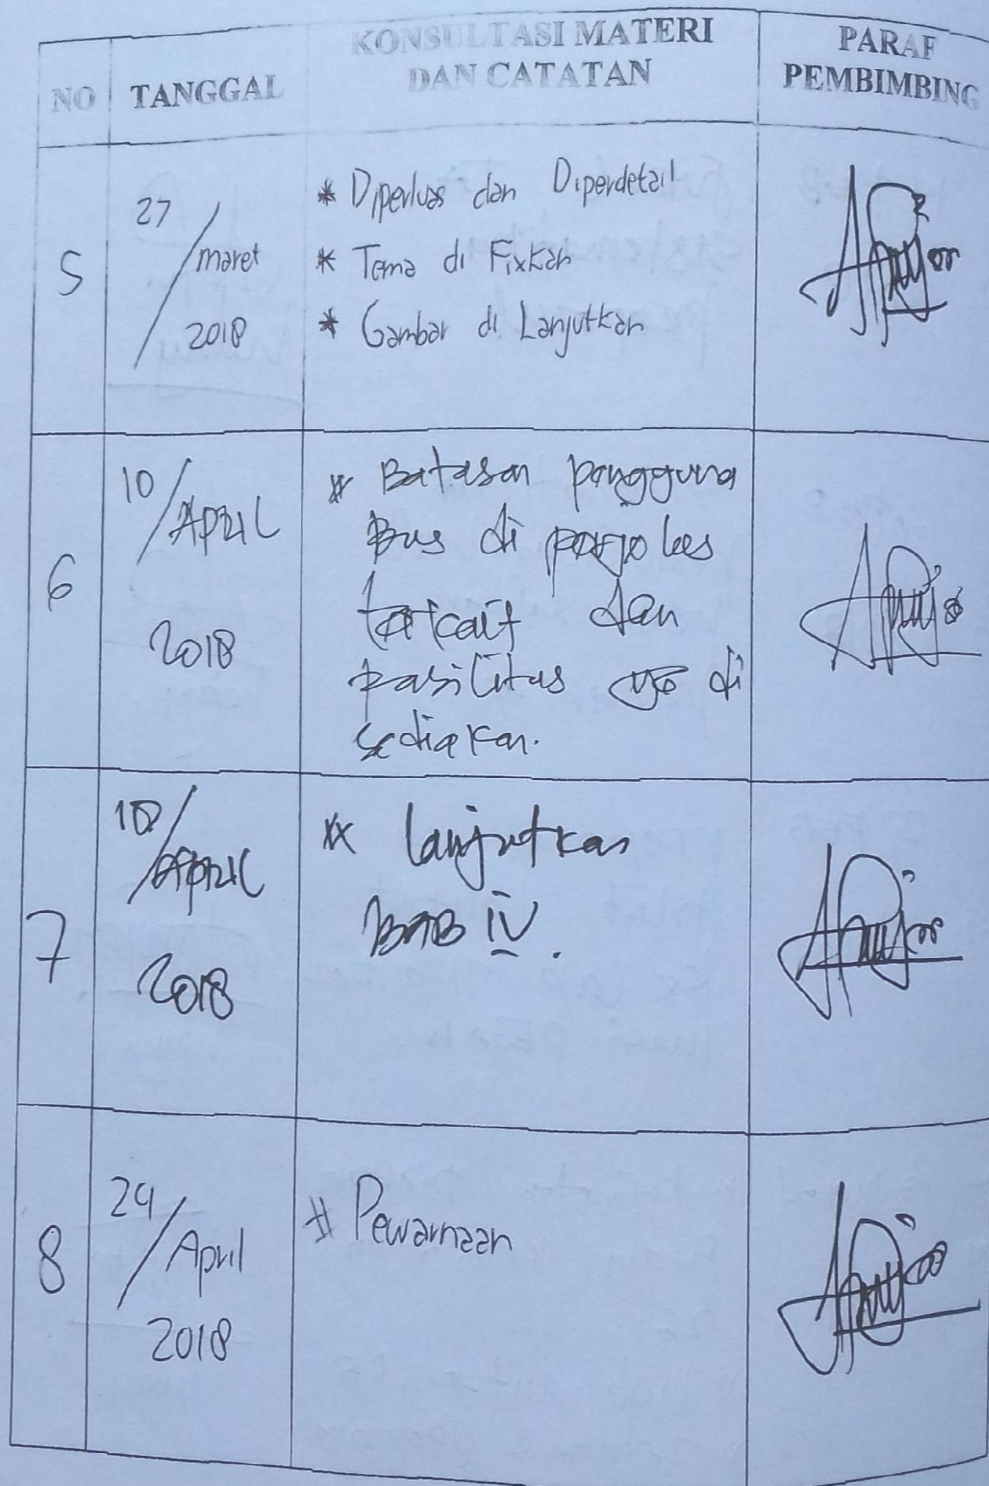 NO
TANGGAL
KONSULTASI MATERI
DAN CATATAN
PARAF
PEMBIMBING
5
27/
maret
2018
* Diperluas dan Diperdetail
* Tema di Fixkan
* Gambar di Lanjutkan
6
10/
April
2018
* Batasan pengguna
Bus di
terkait dan
pasilitas yg di
sediakan.
7
18/
April
2018
** lanjutkan
BAB IV.
8
24/
April
2018
# Pewarnaan